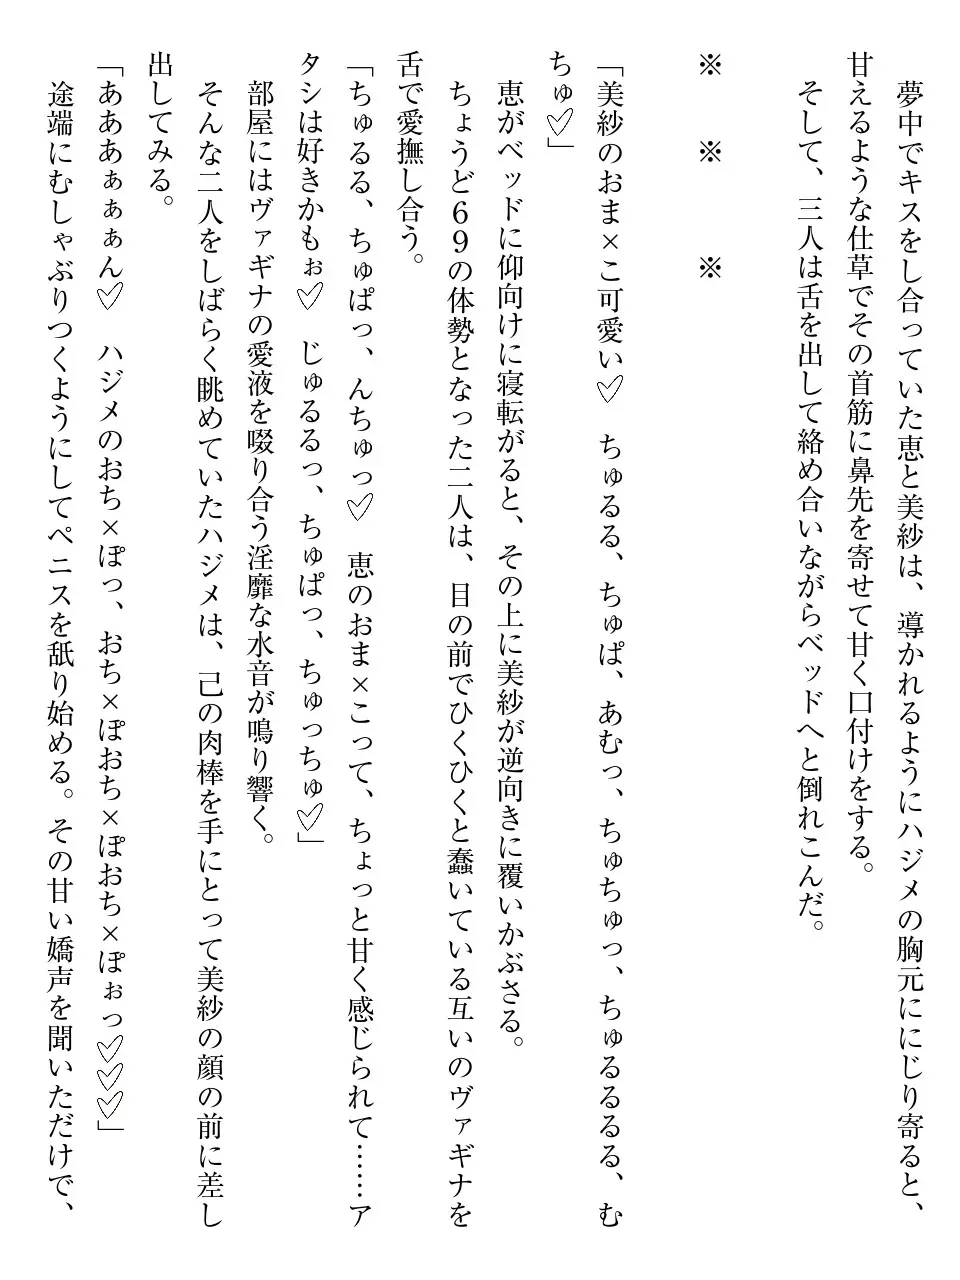 夢中でキスをし合っていた恵と美紗は、導かれるようにハジメの胸元ににじり寄ると、
甘えるような仕草でその首筋に鼻先を寄せて甘く口付けをする。
　そして、三人は舌を出して絡め合いながらベッドへと倒れこんだ。
※　　※　　　※
「美紗のおま×こ可愛い♡　ちゅるる、ちゅぱ、あむっ、ちゅちゅっ、ちゅるるるる、む
ちゅ♡」
　恵がベッドに仰向けに寝転がると、その上に美紗が逆向きに覆いかぶさる。
　ちょうど６９の体勢となった二人は、目の前でひくひくと蠢いている互いのヴァギナを
舌で愛撫し合う。
「ちゅるる、ちゅぱっ、んちゅっ♡　恵のおま×こって、ちょっと甘く感じられて……ア
タシは好きかもぉ♡　じゅるるっ、ちゅぱっ、ちゅっちゅ♡」
　部屋にはヴァギナの愛液を啜り合う淫靡な水音が鳴り響く。
　そんな二人をしばらく眺めていたハジメは、己の肉棒を手にとって美紗の顔の前に差し
出してみる。
「あああぁぁぁん♡　ハジメのおち×ぽっ、おち×ぽおち×ぽおち×ぽぉっ♡♡♡」
　途端にむしゃぶりつくようにしてペニスを舐り始める。その甘い嬌声を聞いただけで、